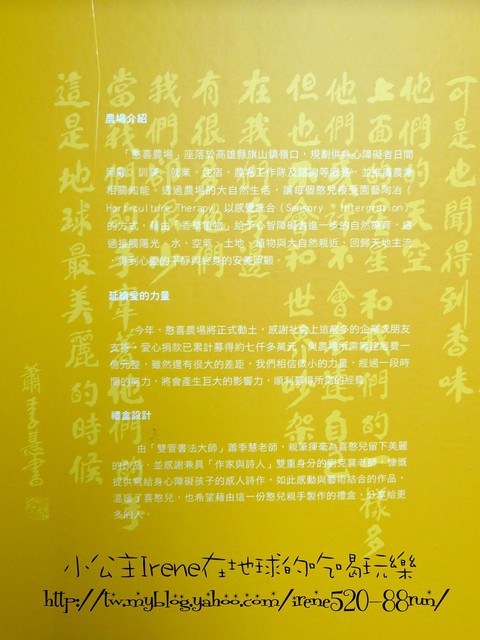 可是也聞得到香味
他們的天空
上面
星和
的
樣多
他們
不會
自己
但也
會和世
吵架
在我
有很
我們
當我們的手摩
他們的
手
這是地球最美麗的時候
蕭季慧書
農場介紹
「憨喜農場」座落於高雄縣旗山鎮嶺口，規劃供身心障礙者日間
照顧、訓練、就業、住宿、農場工作隊及諮詢等服務，並推廣農業
相關知能。透過農場的大自然生活，讓每個憨兒接受園藝陶冶（
Horticulture Therapy）以感覺統合（Sensory Interpration）
的方式，藉由「香草植物」給予心智障礙者進一步的自然療育，透
過接觸陽光、水、空氣、土地、植物與大自然親近、回歸天地主流
，得到心靈的平靜與終身的安養照顧。
延續愛的力量
今年，憨喜農場將正式動土，感謝社會上這麼多的企業及朋友
支持，愛心捐款已累計募得約七仟多萬元，與農場所需籌建經費一
億元整，雖然還有很大的差距，我們相信微小的力量，經過一段時
間的努力，將會產生巨大的影響力，順利募得所需的經費。
禮盒設計
由「雙管書法大師」蕭季慧老師，親筆揮毫為喜憨兒留下美麗
的作品，並感謝兼具「作家與詩人」雙重身分的劉克襄老師，慷慨
提供寫給身心障礙孩子的感人詩作，如此感動與藝術結合的作品，
溫暖了喜憨兒，也希望藉由這一份憨兒親手製作的禮盒，分享給更
多的人。
小公主Irene在地球的吃喝玩樂
http://tw.myblog.yahoo.com/irene520-88run/